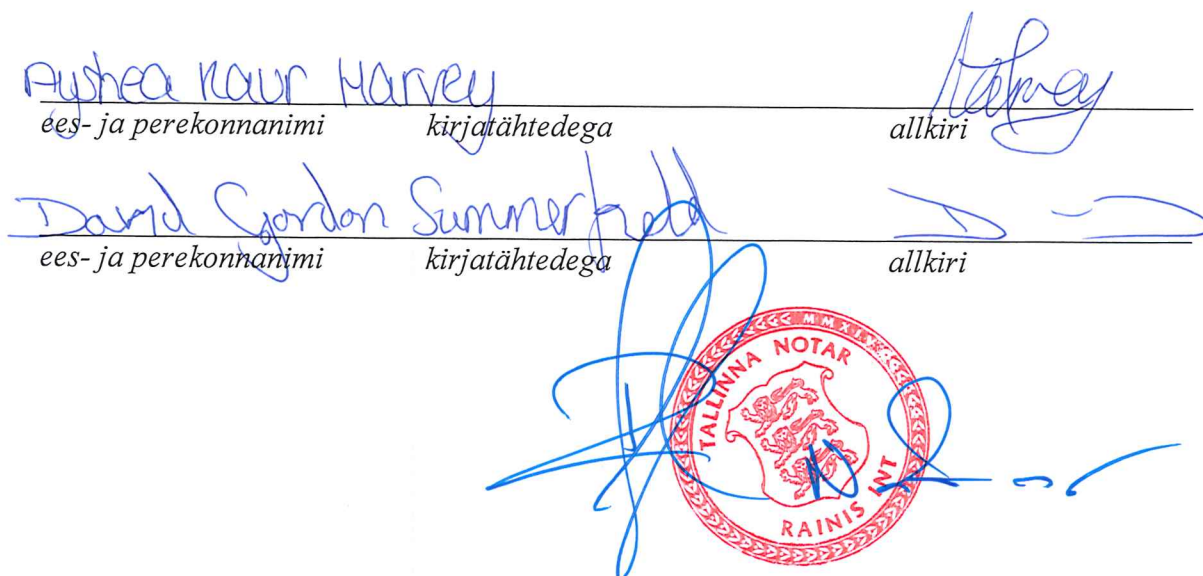 Ayshea Kaur Harvey
ees- ja perekonnanimi kirjatähtedega allkiri
David Gordon Summerfield
ees- ja perekonnanimi kirjatähtedega allkiri
TALLINNA NOTAR
RAINIS INT